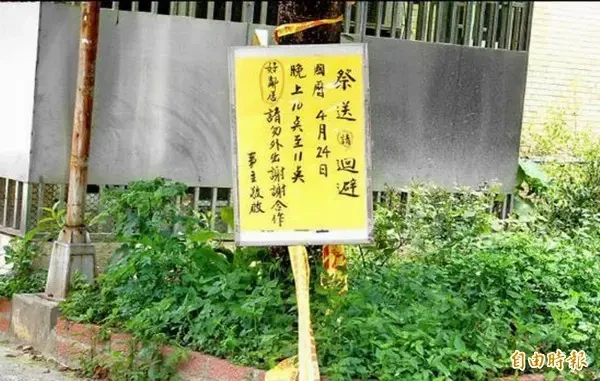 祭送請迴避
國曆4月24日
晚上10奌至11奌
好鄰居請勿外出謝謝合作
事主敬啟
自由時報